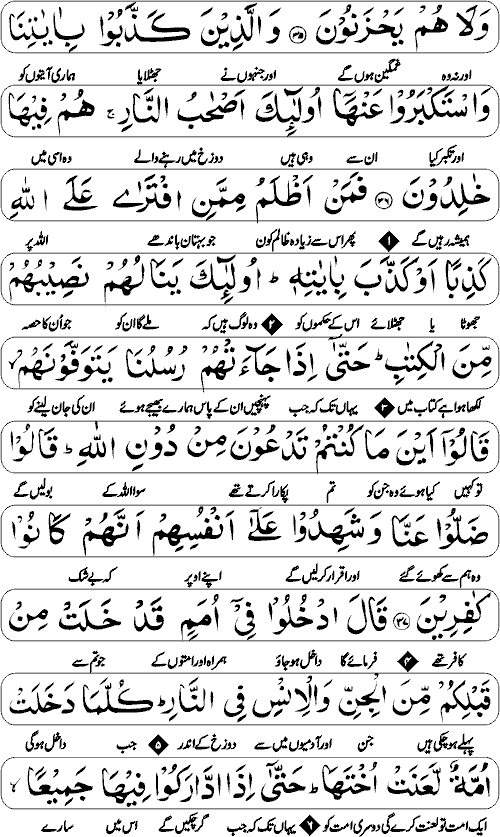 وَلَا هُمْ يَحْزَنُوْنَ ۝۳۵ وَالَّذِيْنَ كَذَّبُوْا بِاٰيٰتِنَا
اور نہ وہ غمگین ہوں گے اور جنہوں نے جھٹلایا ہماری آیتوں کو
وَاسْتَكْبَرُوْا عَنْهَا اُولٰٓئِكَ اَصْحٰبُ النَّارِ ۚ هُمْ فِيْهَا
اور تکبر کیا ان سے وہی ہیں دوزخ میں رہنے والے وہ اسی میں
خٰلِدُوْنَ ۝۳۶ فَمَنْ اَظْلَمُ مِمَّنِ افْتَرٰى عَلَى اللّٰهِ
ہمیشہ رہیں گے ۱ پھر اس سے زیادہ ظالم کون جو بہتان باندھے اللہ پر
كَذِبًا اَوْ كَذَّبَ بِاٰيٰتِهٖ ؕ اُولٰٓئِكَ يَنَالُهُمْ نَصِيْبُهُمْ
جھوٹا یا جھٹلائے اس کے حکموں کو ۲ وہ لوگ ہیں کہ ملے گا ان کو جو اُن کا حصہ
مِّنَ الْكِتٰبِ ؕ حَتّٰۤى اِذَا جَآءَتْهُمْ رُسُلُنَا يَتَوَفَّوْنَهُمْ ۙ
لکھا ہوا ہے کتاب میں ۳ یہاں تک کہ جب پہنچیں ان کے پاس ہمارے بھیجے ہوئے ان کی جان لینے کو
قَالُوْۤا اَيْنَ مَا كُنْتُمْ تَدْعُوْنَ مِنْ دُوْنِ اللّٰهِ ؕ قَالُوْا
تو کہیں کیا ہوئے وہ جن کو تم پکارا کرتے تھے سوا اللہ کے بولیں گے
ضَلُّوْا عَنَّا وَشَهِدُوْا عَلٰۤى اَنْفُسِهِمْ اَنَّهُمْ كَانُوْا
وہ ہم سے کھوئے گئے اور اقرار کرلیں گے اپنے اوپر کہ بے شک
كٰفِرِيْنَ ۝۳۷ قَالَ ادْخُلُوْا فِيْۤ اُمَمٍ قَدْ خَلَتْ مِنْ
کافر تھے ۴ فرمائے گا داخل ہو جاؤ ہمراہ اور امتوں کے جو تم سے
قَبْلِكُمْ مِّنَ الْجِنِّ وَالْاِنْسِ فِي النَّارِ ؕ كُلَّمَا دَخَلَتْ
پہلے ہو چکی ہیں جن اور آدمیوں میں سے دوزخ کے اندر ۵ جب داخل ہوگی
اُمَّةٌ لَّعَنَتْ اُخْتَهَا ؕ حَتّٰۤى اِذَا ادَّارَكُوْا فِيْهَا جَمِيْعًا ۙ
ایک امت تو لعنت کرے گی دوسری امت کو ۶ یہاں تک کہ جب گر چکیں گے اس میں سارے